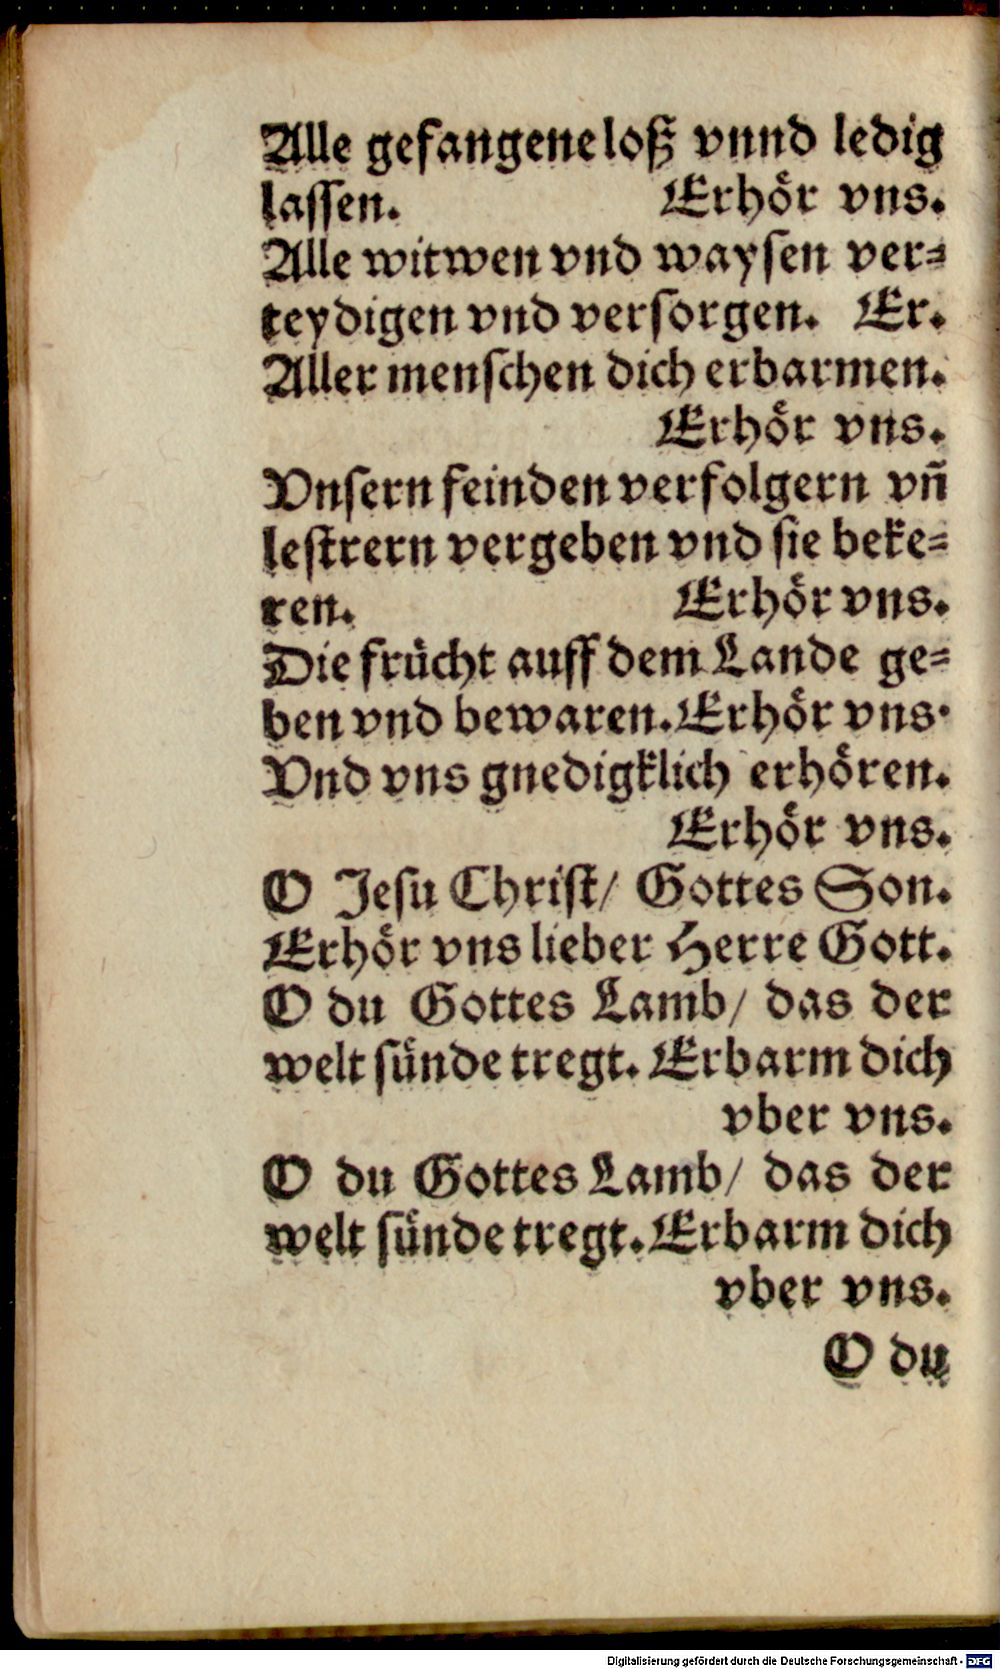 Alle gefangene loß vnnd ledig
lassen. Erhör vns.
Alle witwen vnd waysen ver=
teydigen vnd versorgen. Er.
Aller menschen dich erbarmen.
Erhör vns.
Vnsern feinden verfolgern vn̄
lestrern vergeben vnd sie beke=
ren. Erhör vns.
Die frücht auff dem Lande ge=
ben vnd bewaren. Erhör vns.
Vnd vns gnedigklich erhören.
Erhör vns.
O Jesu Christ/ Gottes Son.
Erhör vns lieber Herre Gott.
O du Gottes Lamb/ das der
welt sünde tregt. Erbarm dich
vber vns.
O du Gottes Lamb/ das der
welt sünde tregt. Erbarm dich
vber vns.
O du
Digitalisierung gefördert durch die Deutsche Forschungsgemeinschaft - DFG